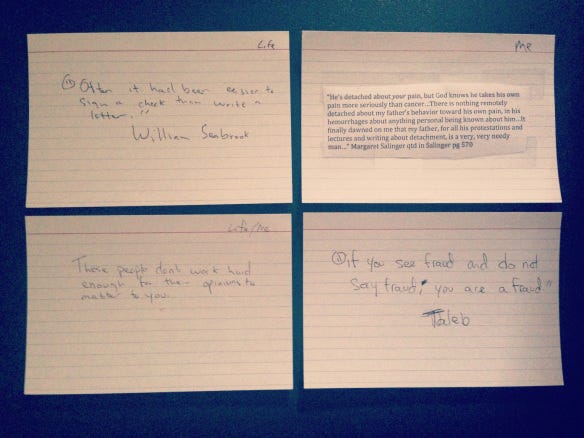 Life
" Often it had been easier to
sign a check than write a
letter."
William Seabrook
Me
"He's detached about your pain, but God knows he takes his own
pain more seriously than cancer...There is nothing remotely
detached about my father's behavior toward his own pain, in his
hemorrhages about anything personal being known about him...It
finally dawned on me that my father, for all his protestations and
lectures and writing about detachment, is a very, very needy
man..." Margaret Salinger qtd in Salinger pg 570
Life/Me
These people don't work hard
enough for their opinions to
matter to you.
"if you see fraud and do not
say fraud, you are a fraud"
Taleb